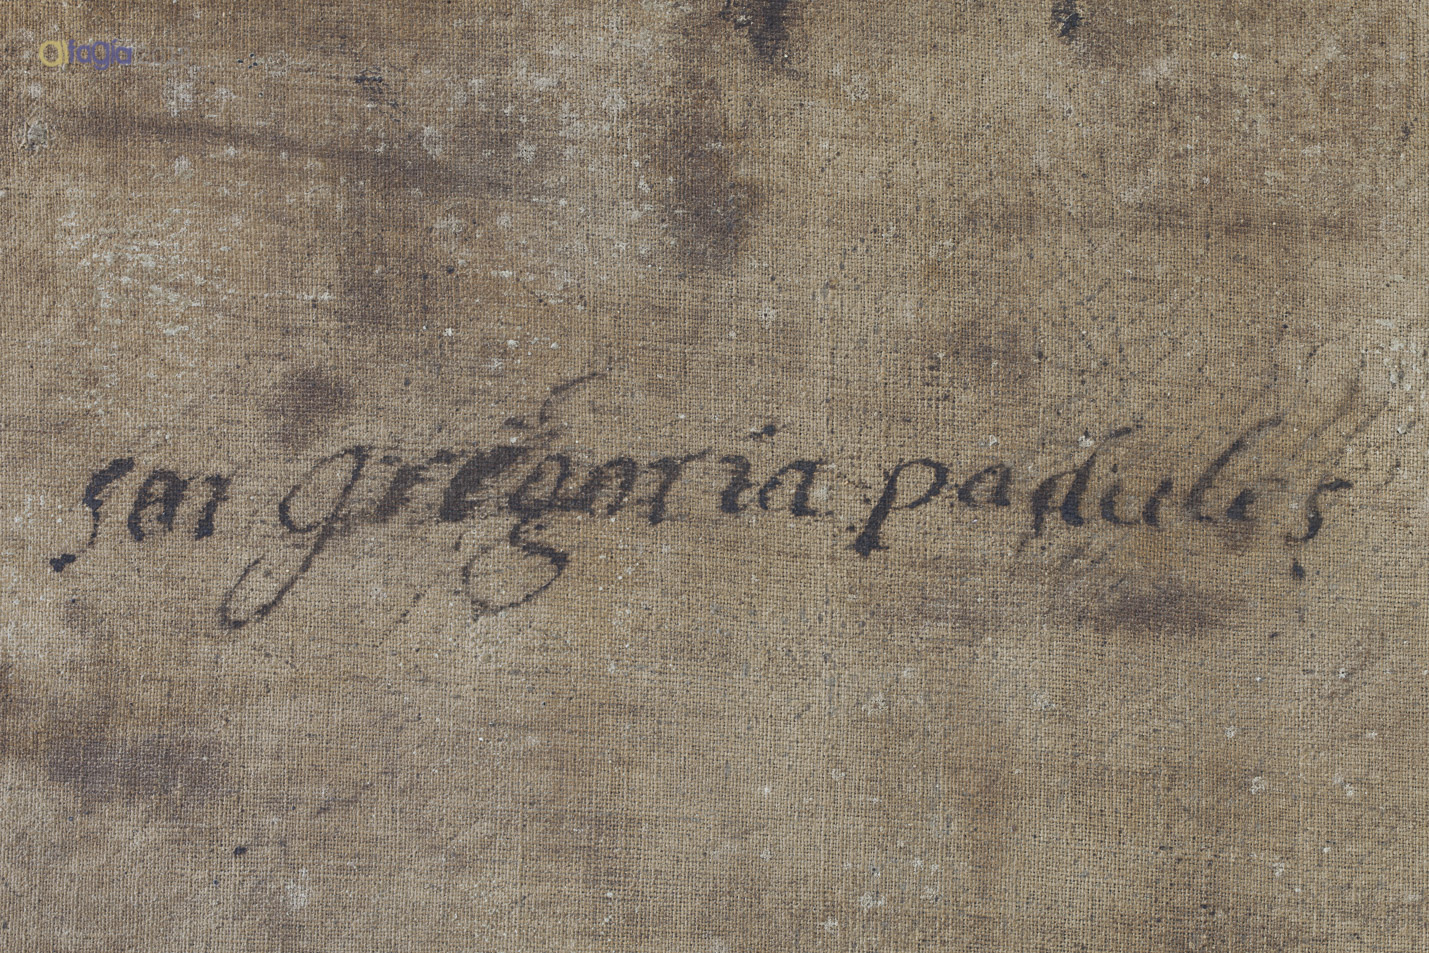 altagia
sar gregoria padules